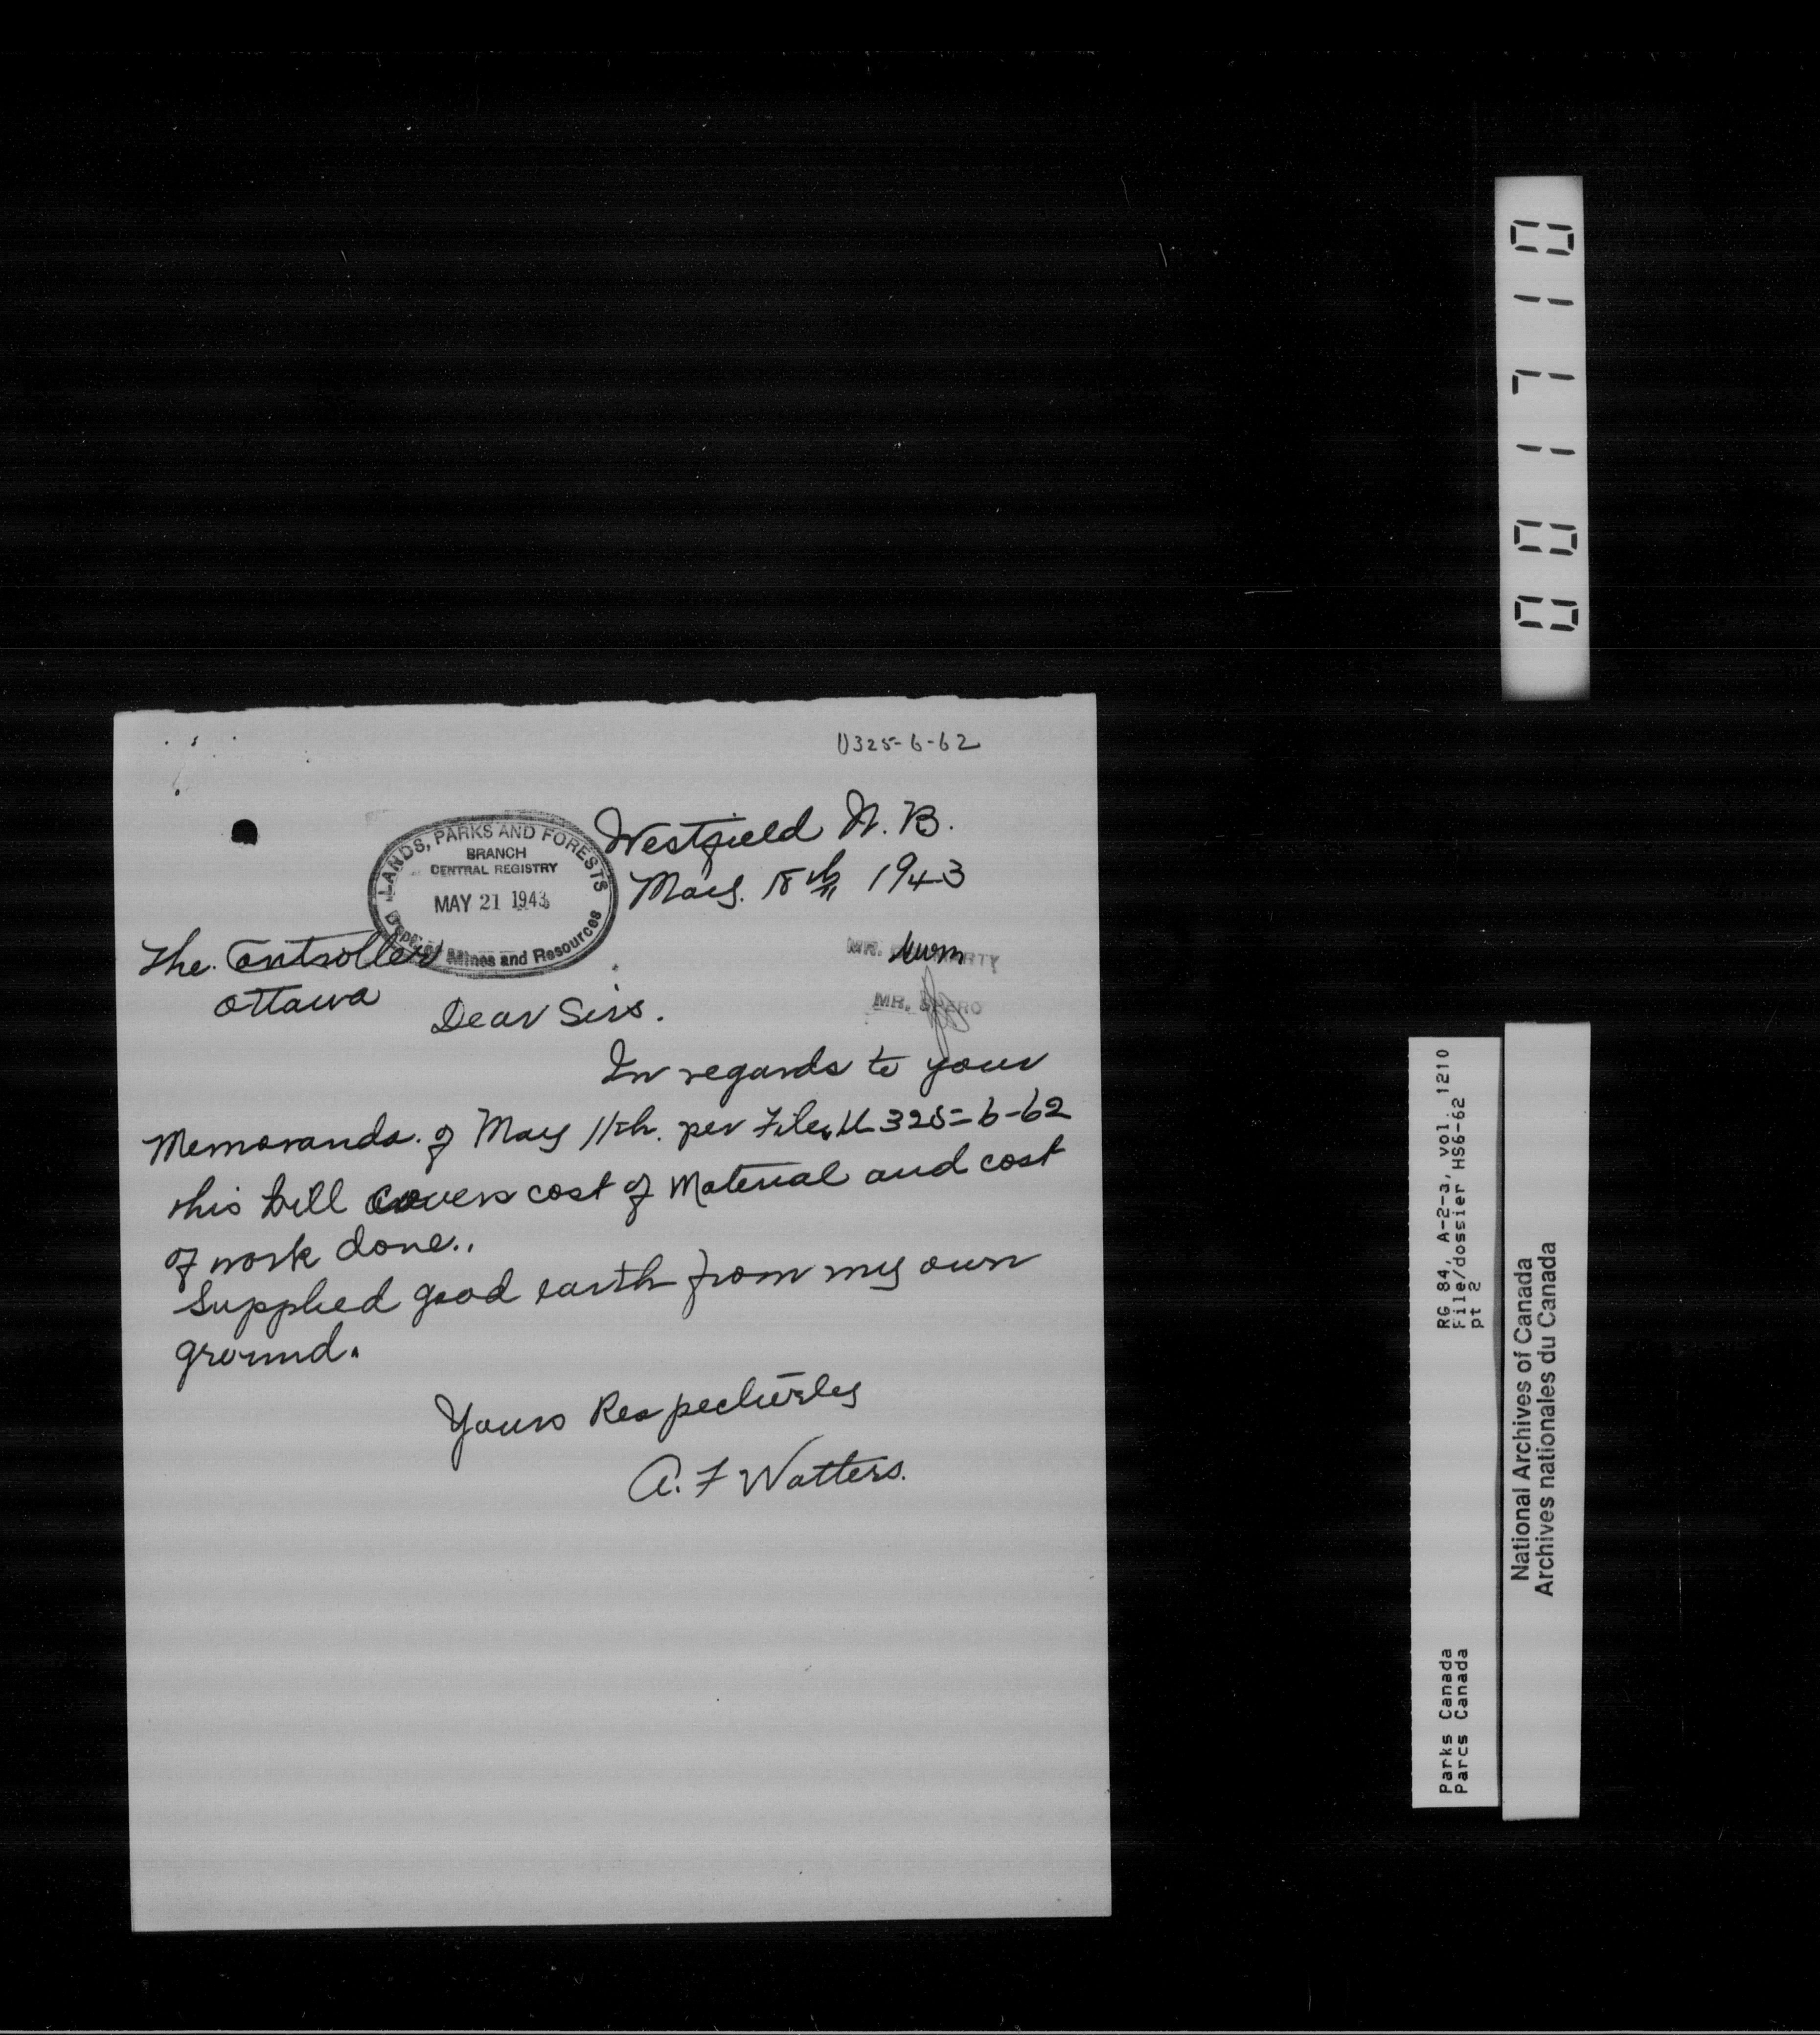 U325-6-62
Westfield N. B.
May. 18th 1943
LANDS, PARKS AND FORESTS
BRANCH
CENTRAL REGISTRY
MAY 21 1943
Dept. of Mines and Resources
The Controller
Ottawa
MR.
MR. SPERO
Dear Sirs.
In regards to your
Memoranda. of May 11th. per File, U 325-6-62
this bill covers cost of Material and cost
of work done..
Supplied good earth from my own
ground.
Yours Respectively
A. F Watters.
001710
RG 84, A-2-3, vol. 1210
File/dossier HS6-62
pt 2
Parks Canada
Parcs Canada
National Archives of Canada
Archives nationales du Canada